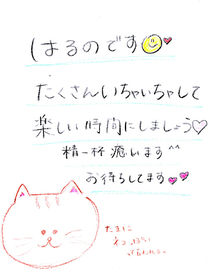 はるのです
たくさんいちゃいちゃして
楽しい時間にしましょう♡
精一杯癒います^^
お待ちしてます
たまに
ネコっぽい
って言われる。